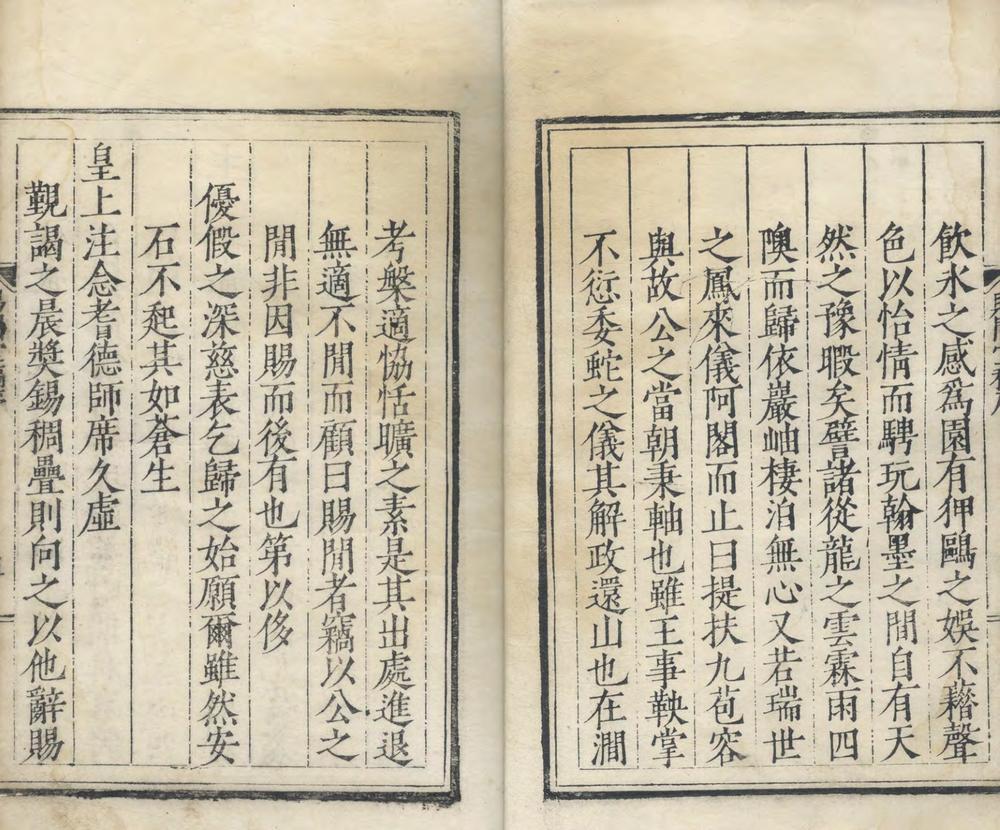 飲水之感爲園有狎鷗之娛不藉聲
色以怡情而騁玩翰墨之間自有天
然之豫暇矣譬諸從龍之雲霖雨四
隩而歸依巖岫棲泊無心又若瑞世
之鳳來儀阿閣而止曰提扶九苞容
與故公之當朝秉軸也雖王事鞅掌
不愆委蛇之儀其解政還山也在澗
考槃適恊恬曠之素是其出處進退
無適不閒而顧曰賜閒者竊以公之
閒非因賜而後有也第以侈
優假之深慈表乞歸之始願爾雖然安
石不起其如蒼生
皇上注念耆德師席久虛
覲謁之晨獎錫稠疊則向之以他辭賜